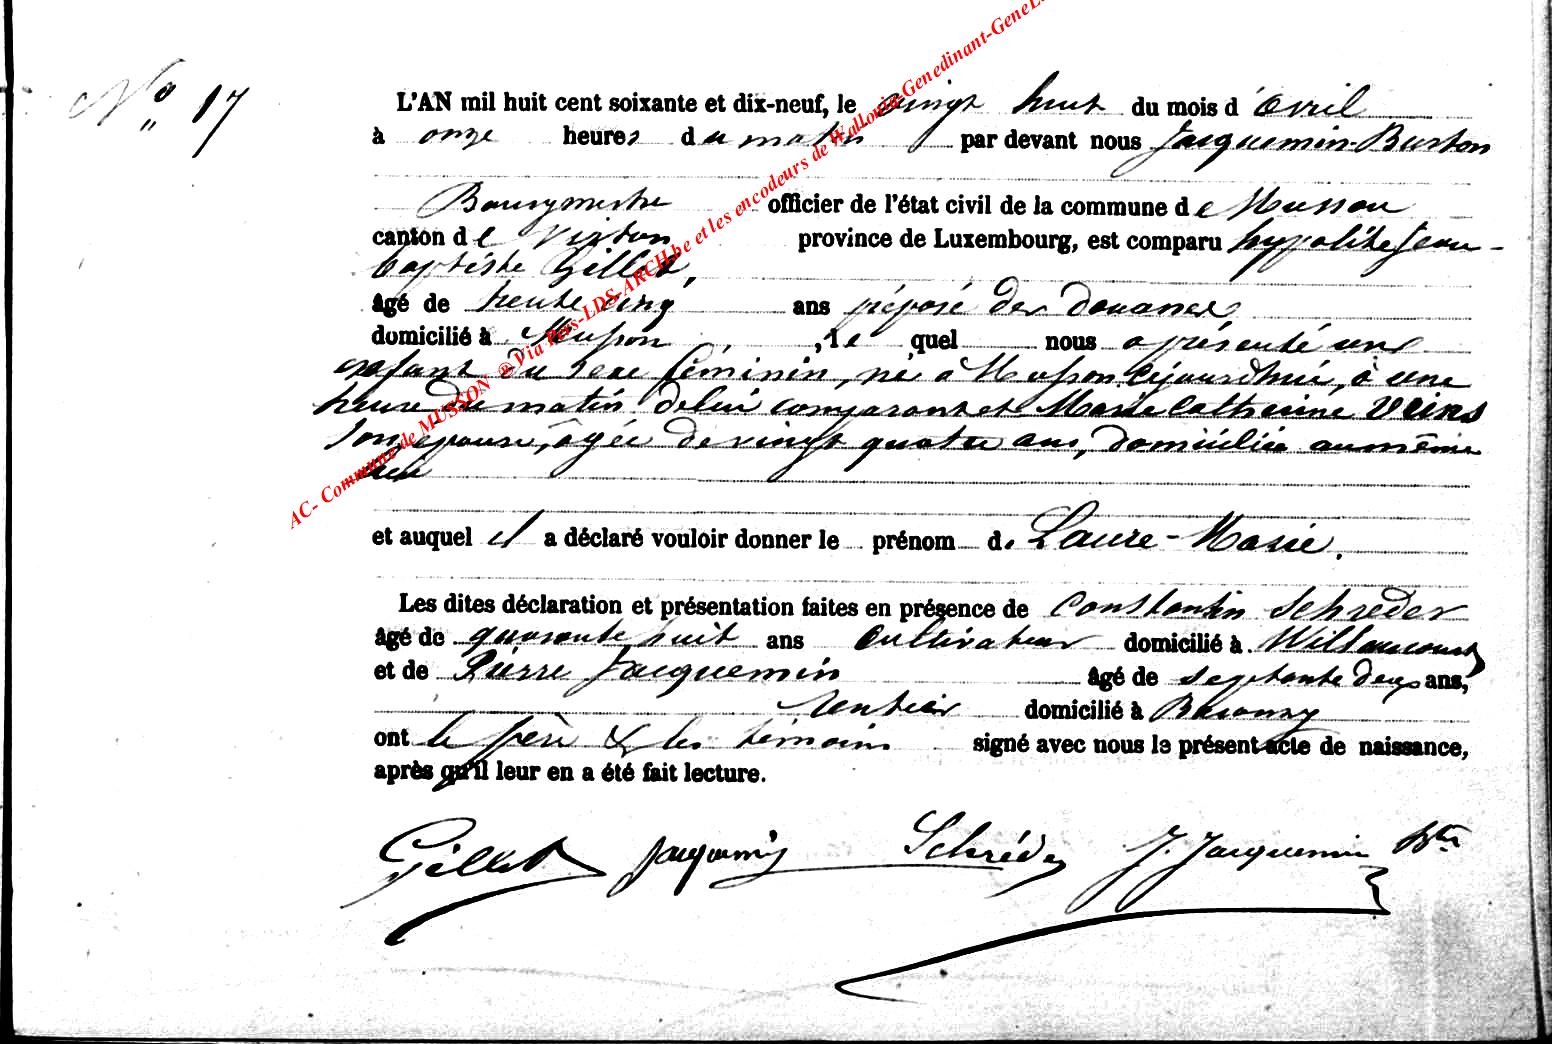 N° 17
L'AN mil huit cent soixante et dix-neuf, le vingt huit du mois d'Avril
à onze heures du matin par devant nous Jacquemin-Burton
Bourgmestre officier de l'état civil de la commune de Musson
canton de Virton province de Luxembourg, est comparu hypolite Jean-
Baptiste Gillet,
âgé de trente cinq ans préposé des douanes
domicilié à Musson, le quel nous a présenté un
enfant du sexe féminin, né à Musson cejourdhui, à une
heure du matin de lui comparant et Marie Catherine
son épouse, âgée de vingt quatre ans, domiciliée au même
lieu
et auquel il a déclaré vouloir donner le prénom de Laure-Marie.
Les dites déclaration et présentation faites en présence de Constantin Schréder
âgé de quarante huit ans Cultivateur domicilié à Willancourt
et de Pierre Jacquemin âgé de septante deux ans,
rentier domicilié à Baranzy
ont le père & les témoins signé avec nous le présent acte de naissance,
après qu'il leur en a été fait lecture.
Gillet Jacquemin Schréder J. Jacquemin Btn
AC- Commune de MUSSON ® Via Pers-LDS-ARCH.be et les encodeurs de Wallonia-Genedinant-GeneL